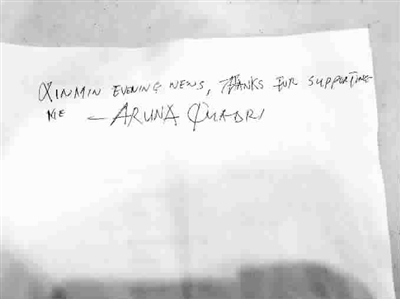 XINMIN EVENING NEWS, THANKS FOR SUPPORTING
ME - ARUNA QUADRI